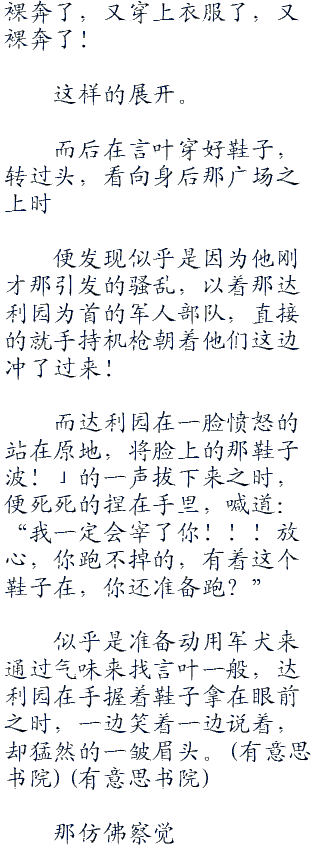 裸奔了，又穿上衣服了，又
裸奔了！
这样的展开。
而后在言叶穿好鞋子，
转过头，看向身后那广场之
上时
便发现似乎是因为他刚
才那引发的骚乱，以着那达
利园为首的军人部队，直接
的就手持机枪朝着他们这边
冲了过来！
而达利园在一脸愤怒的
站在原地，将脸上的那鞋子
波！」的一声拔下来之时，
便死死的捏在手里，喊道：
“我一定会宰了你！！！放
心，你跑不掉的，有着这个
鞋子在，你还准备跑？”
似乎是准备动用军犬来
通过气味来找言叶一般，达
利园在手握着鞋子拿在眼前
之时，一边笑着一边说着，
却猛然的一皱眉头。(有意思
书院)(有意思书院)
那仿佛察觉